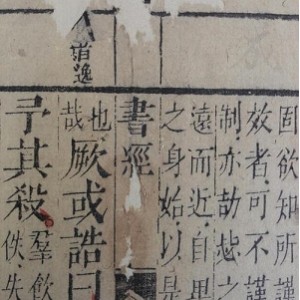 固欲知所謹
效者可不謹
制亦劫毖之
遠而近自思
之身始以是
書經
也
哉
厥或誥曰
予其殺
羣飲
佚失